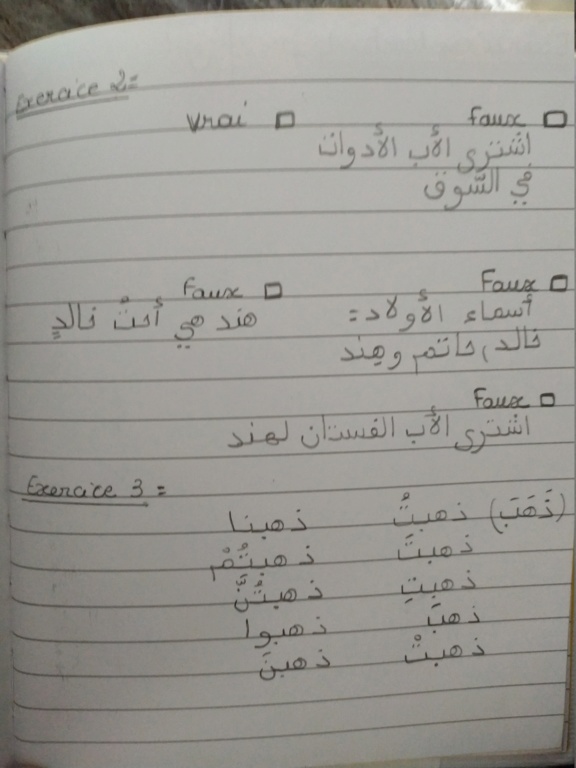 Exercice 2=
faux vrai
اشترى الأب الأدوات
في السّوق
Faux Faux
أسماء الأولاد= هند هي أختُ خالدٍ
خالد، حاتم وهِند
Faux
اشترى الأب الفستان لهند
Exercice 3 =
(ذَهَبَ) ذهبتُ ذهبنا
ذهبتَ ذهبتُمْ
ذهبتِ ذهبتُنَّ
ذهبَ ذهبوا
ذهبتْ ذهبنَ